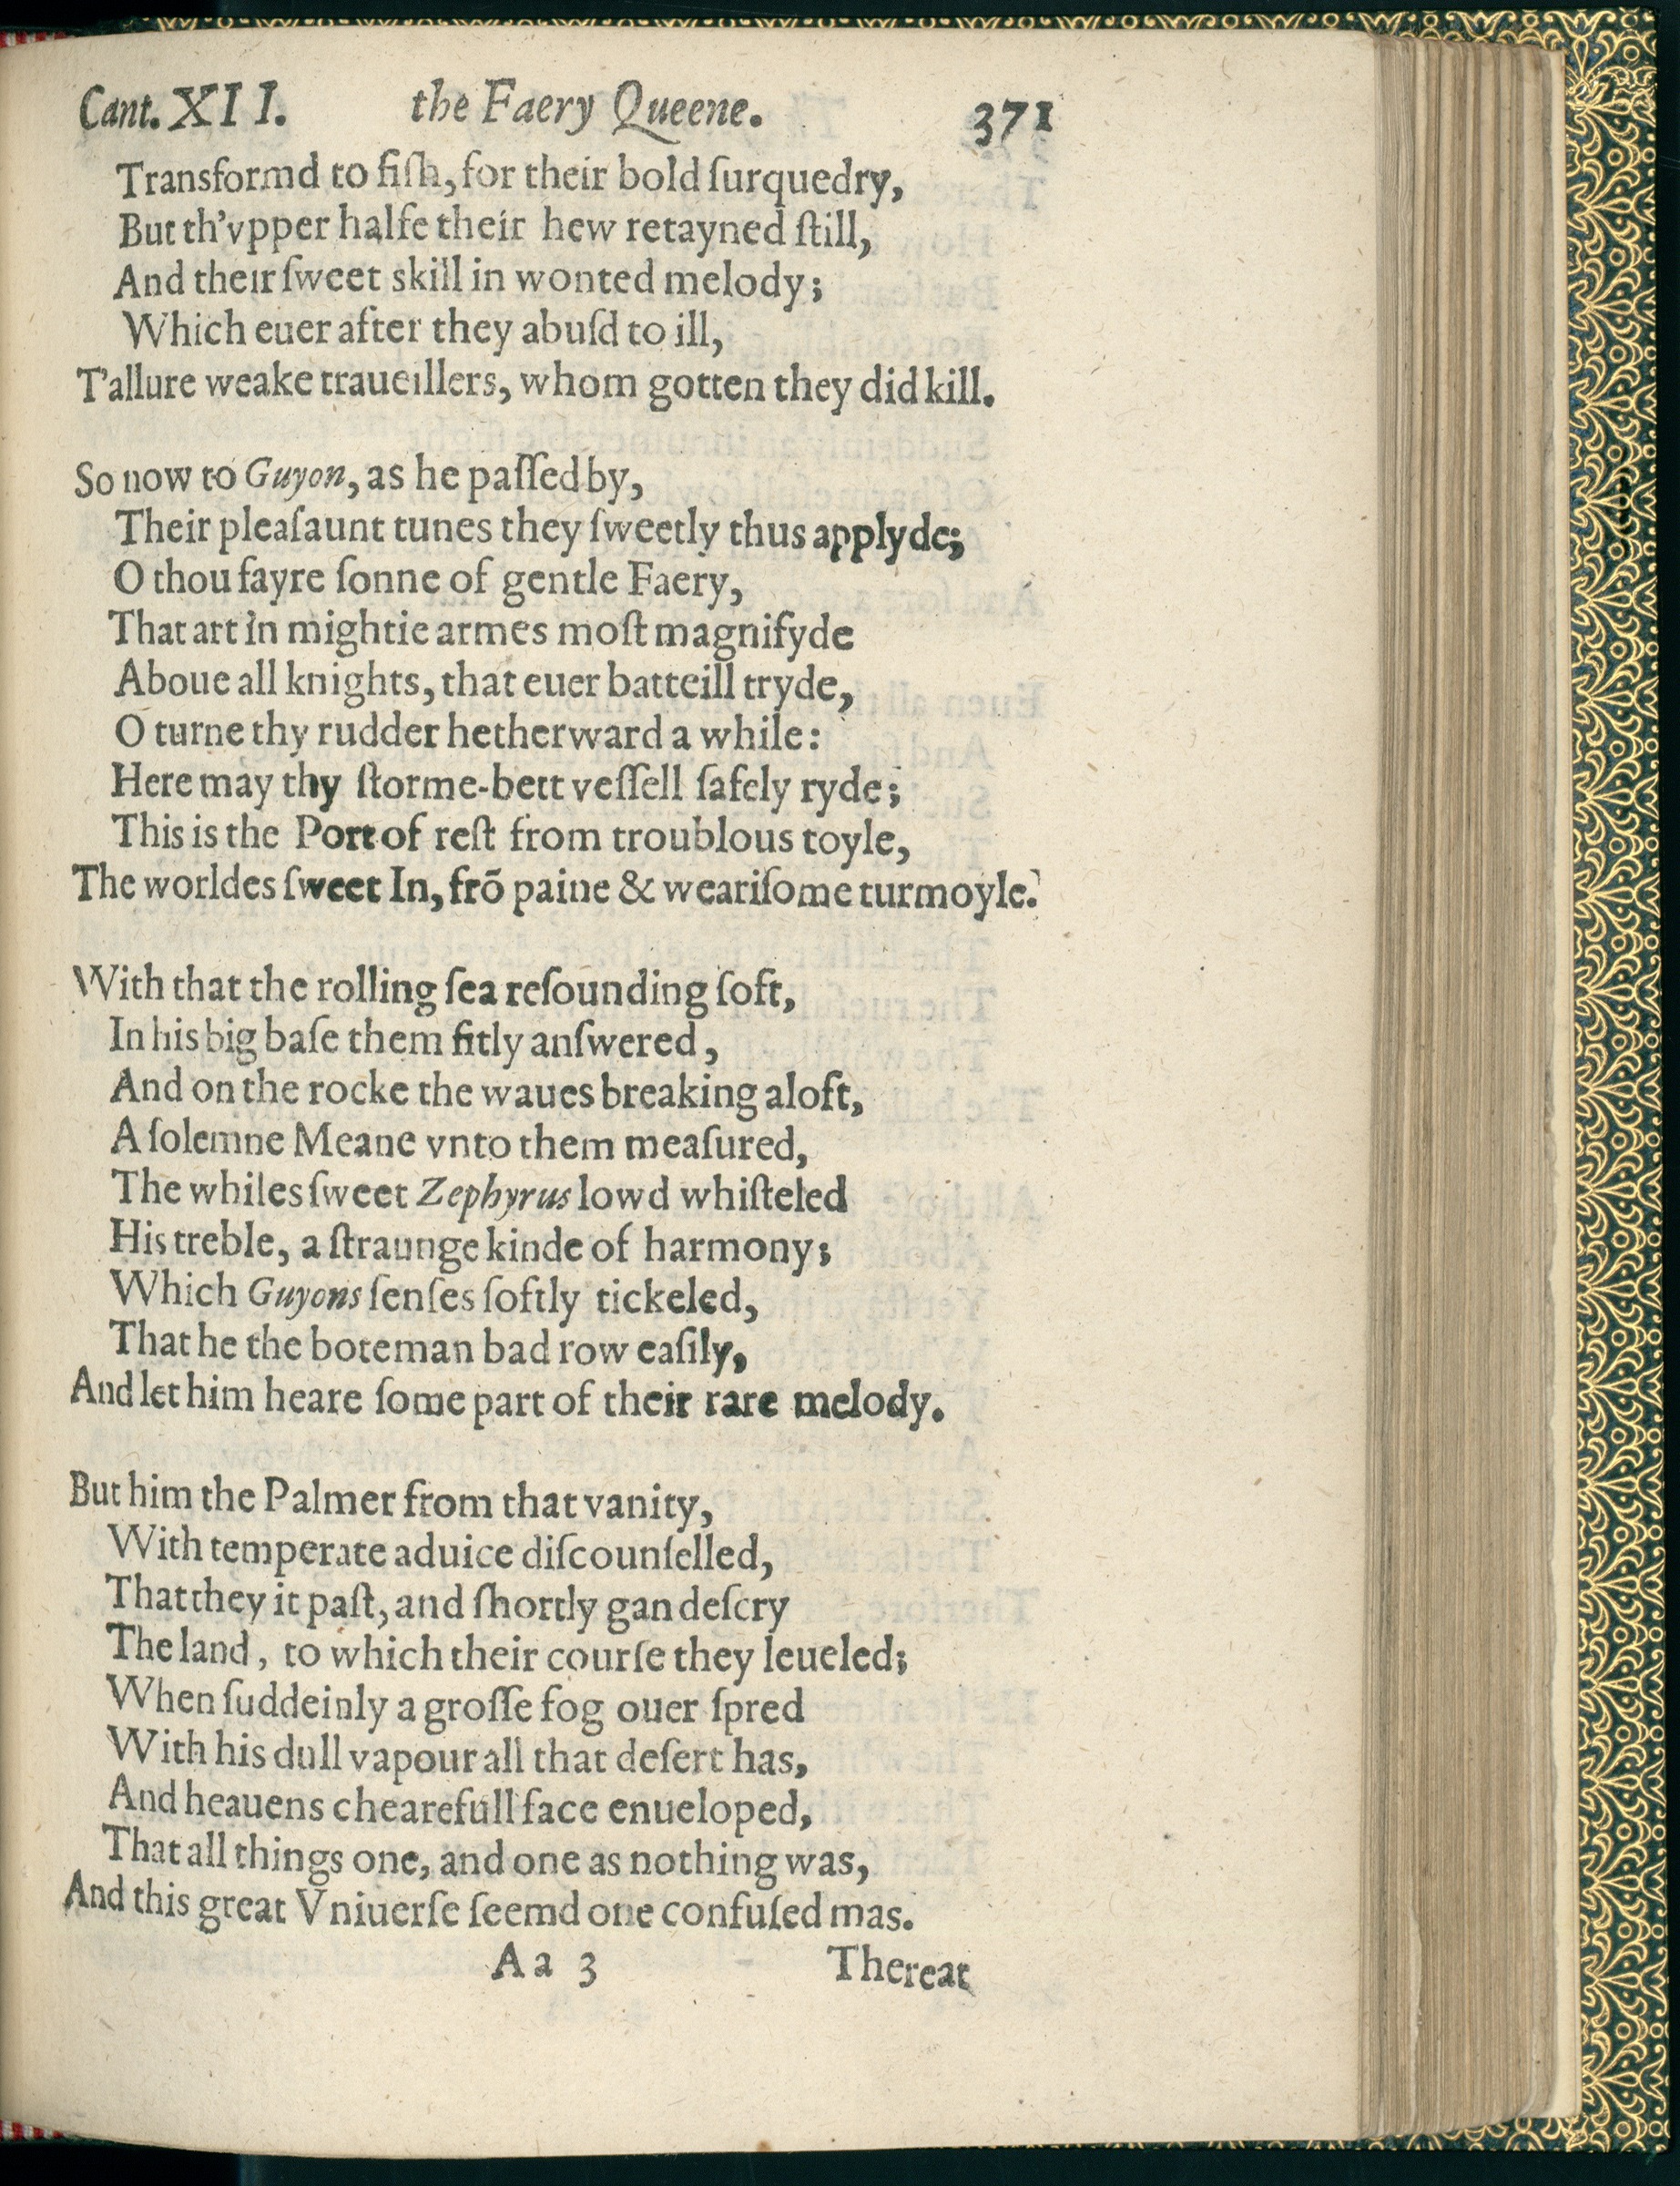 Cant. XII. the Faery Queene. 371
Transformd to fiſh, for their bold ſurquedry,
But th'vpper halfe their hew retayned ſtill,
And their ſweet skill in wonted melody;
Which euer after they abuſd to ill,
T'allure weake traueillers, whom gotten they did kill.
So now to Guyon, as he paſſed by,
Their pleaſaunt tunes they ſweetly thus applyde;
O thou fayre ſonne of gentle Faery,
That art in mightie armes moſt magnifyde
Aboue all knights, that euer batteill tryde,
O turne thy rudder hetherward a while:
Here may thy ſtorme-bett veſſell ſafely ryde;
This is the Port of reſt from troublous toyle,
The worldes ſweet In, frō paine & weariſome turmoyle.
With that the rolling ſea reſounding ſoft,
In his big baſe them fitly anſwered,
And on the rocke the waues breaking aloft,
A ſolemne Meane vnto them meaſured,
The whiles ſweet Zephyrus lowd whiſteled
His treble, a ſtraunge kinde of harmony;
Which Guyons ſenſes ſoftly tickeled,
That he the boteman bad row eaſily,
And let him heare ſome part of their rare melody.
But him the Palmer from that vanity,
With temperate aduice diſcounſelled,
That they it paſt, and ſhortly gan deſcry
The land, to which their courſe they leueled;
When ſuddeinly a groſſe fog ouer ſpred
With his dull vapour all that deſert has,
And heauens chearefull face enueloped,
That all things one, and one as nothing was,
And this great Vniuerſe ſeemd one confuſed mas.
Aa 3 Thereat